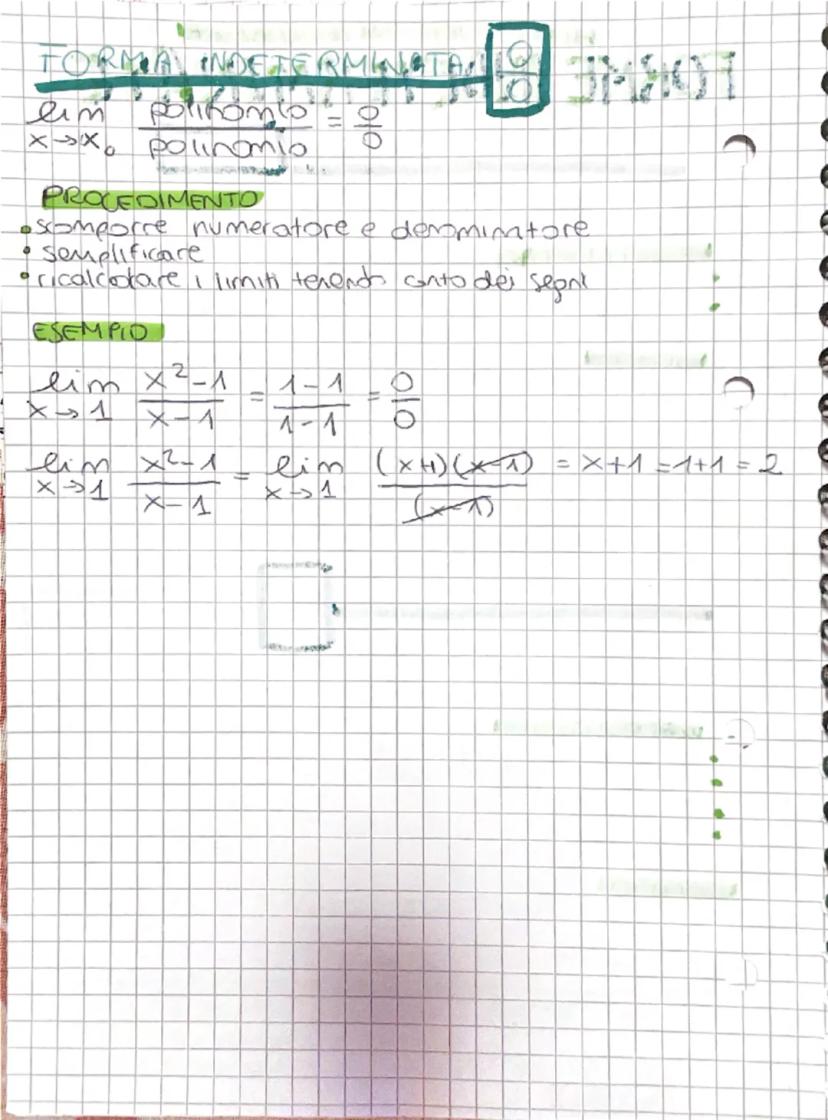 FORMA INDETERMINATA 0/0
lim x→x₀ polinomio/polinomio = 0/0
PROCEDIMENTO
• scomporre numeratore e denominatore
• semplificare
• ricalcolare i limiti tenendo conto dei segni
ESEMPIO
lim x→1 x²-1/x-1 = 1-1/1-1 = 0/0
lim x→1 x²-1/x-1 = lim x→1 (x+1)(x-1)/(x-1) = x+1 = 1+1 = 2